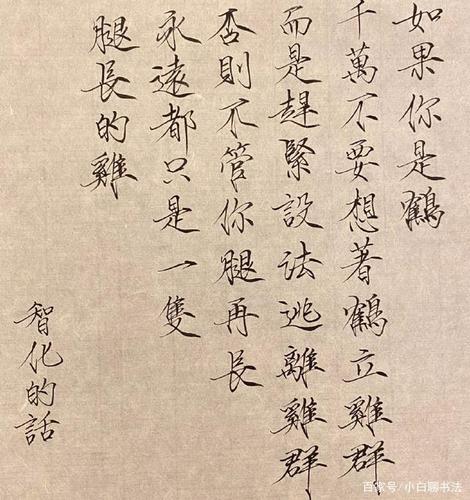 如果你是鶴
千萬不要想著鶴立雞群
而是趕緊設法逃離雞群
否則不管你腿再長
永遠都只是一隻
腿長的雞
智化的話
百家号/小白聊书法